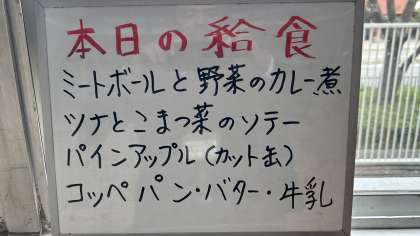 本日の給食
ミートボールと野菜のカレー煮
ツナとこまつ菜のソテー
パインアップル(カット缶)
コッペパン・バター・牛乳